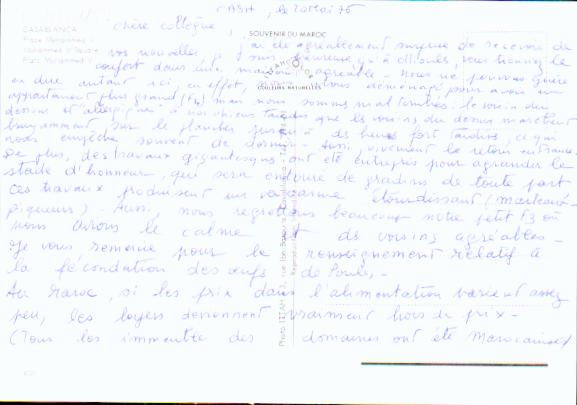 CASA, le 20 Mai 76
Chère collègue,
CASABLANCA
Place Mohammed V
SOUVENIR DU MAROC
COULEURS NATURELLES
j'ai été agréablement surprise de recevoir de
vos nouvelles, suis heureuse qu'à Ollioules, vous trouviez le
confort dans une maison agréable. Nous ne pouvons guère
en dire autant ici en effet, nous déménagé pour avoir un
appartement plus grand (F4) mais nous sommes mal tombés. Le voisin du
dessous est allergique à nos chiens tandis que les voisins du dessus marchent
bruyamment sur le plancher jusqu'à des heures fort tardives, ce qui
nous empêche souvent de dormir. Aussi, vivement le retour en France.
De plus, des travaux gigantesques ont été entrepris pour agrandir le
stade d'honneur, qui sera entouré de gradins de toute part
Ces travaux produisent un vacarme étourdissant (marteaux-
piqueurs) Aussi, nous regrettons beaucoup notre petit F3 où
nous avions le calme et des voisins agréables -
Je vous remercie pour le renseignement relatif à
la fécondation des œufs de Poules. -
Au Maroc, si les prix dans l'alimentation varient assez
peu, les loyers deviennent vraiment hors de prix -
(Tous les immeubles des domaines ont été marocanisés)